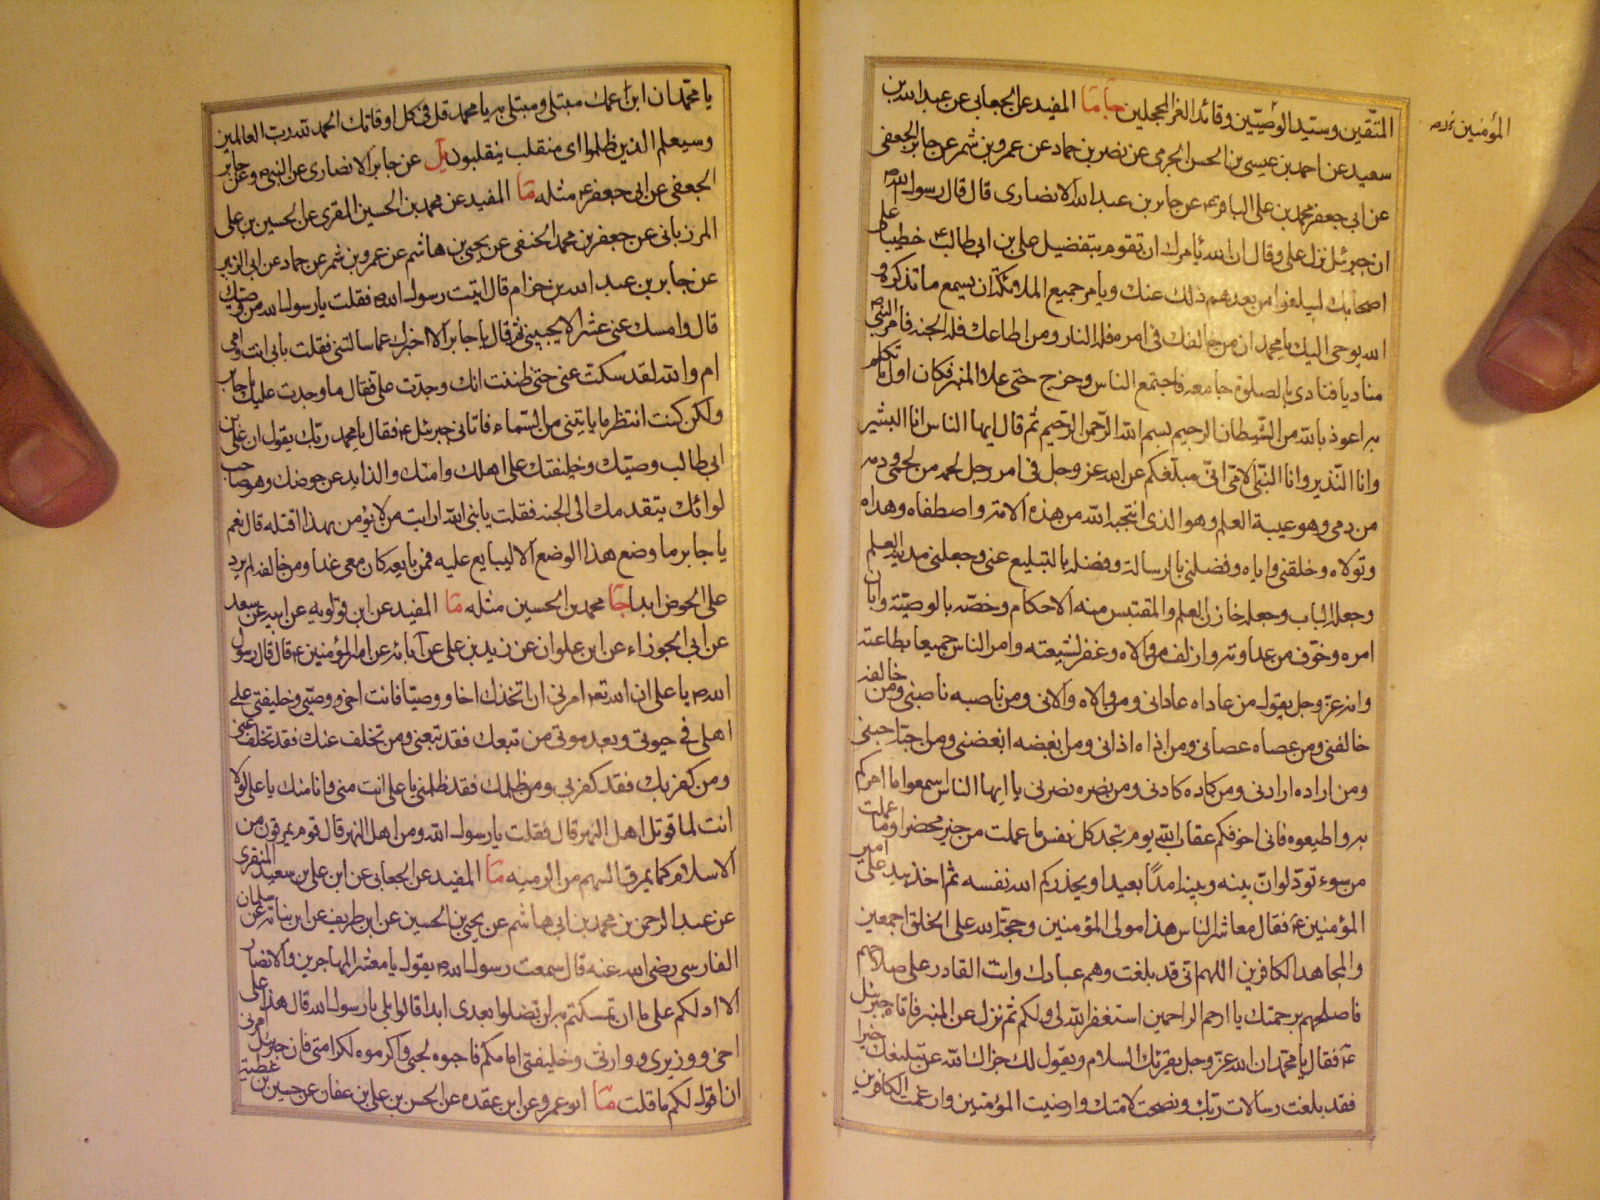 المتقين وسيد الوصيين وقائد الغر المحجلين جا ما المفيد عن الجعابى عن عبد الله بن
المؤمنين
سعيد عن احمد بن عيسى بن الحسن الجرمى عن نصر بن حماد عن عمرو بن شمر عن جابر الجعفى
عن ابى جعفر محمد بن على الباقر ع عن جابر بن عبد الله الانصارى قال قال رسول الله ص
ان جبرئيل نزل على وقال ان الله يامرك ان تقوم بتفضيل على بن ابى طالب ع خطيبا على
اصحابك ليبلغوا من بعدهم ذلك عنك ويامر جميع الملائكة ان يسمع ما تذكره و
الله يوحى اليك يا محمد ان من خالفك فى امره فله النار ومن اطاعك فله الجنة فامر النبى ص
مناديا فنادى بالصلوة جامعة فاجتمع الناس وخرج حتى علا المنبر فكان اول ما تكلم
به اعوذ بالله من الشيطان الرجيم بسم الله الرحمن الرحيم ثم قال ايها الناس انا البشير
وانا النذير وانا النبى الامى انى مبلغكم عن الله عز وجل فى امر رجل لحمه من لحمى ودمه
من دمى وهو عيبة العلم وهو الذى انتجبه الله من هذه الامة واصطفاه وهداه
وتولاه وخلقنى واياه وفضلنى بالرسالة وفضله بالتبليغ عنى وجعلنى مدينة العلم
وجعله الباب وجعله خازن العلم والمقتبس منه الاحكام وخصه بالوصية وابان
امره وخوف من عداوته وازلف من والاه وغفر لشيعته وامر الناس جميعا بطاعته
وانه عز وجل يقول من عاداه عادانى ومن والاه والانى ومن ناصبه ناصبنى ومن خالفه
خالفنى ومن عصاه عصانى ومن اذاه اذانى ومن ابغضه ابغضنى ومن احبه احبنى
ومن اراده ارادنى ومن كاده كادنى ومن نصره نصرنى يا ايها الناس اسمعوا ما امركم
به واطيعوه فانى اخوفكم عقاب الله يوم تجد كل نفس ما عملت من خير محضرا وما عملت
من سوء تود لو ان بينه وبينه امدا بعيدا ويحذركم الله نفسه ثم اخذ بيد على امير
المؤمنين ع فقال معاشر الناس هذا مولى المؤمنين وحجة الله على الخلق اجمعين
والمجاهد الكافرين اللهم انى قد بلغت وهم عبادك وانت القادر على صلاحهم
فاصلحهم برحمتك يا ارحم الراحمين استغفر الله لى ولكم ثم نزل عن المنبر فاتاه جبرئيل
ع فقال يا محمد ان الله عز وجل يقرئك السلام ويقول لك جزاك الله عن تبليغك خيرا
فقد بلغت رسالات ربك ونصحت لامتك وارضيت المؤمنين وارغمت الكافرين
يا محمد ان ابن عمك مبتلى ومبتلى به يا محمد قل فى كل اوقاتك الحمد لله رب العالمين
وسيعلم الذين ظلموا اى منقلب ينقلبون يل عن جابر الانصارى عن النبى ص وعن جابر
الجعفى عن ابى جعفر ع مثله ما المفيد عن محمد بن الحسين المقرى عن الحسين بن على
المرزبانى عن جعفر بن محمد الحنفى عن يحيى بن هاشم عن عمرو بن شمر عن حماد عن ابى الزبير
عن جابر بن عبد الله بن حزام قال اتيت رسول الله ص فقلت يا رسول الله من وصيك
قال وامسك عنى عشرا لا يجيبنى ثم قال يا جابر الا اخبرك عما سالتنى فقلت بابى انت وامى
ام والله لقد سكت عنى حتى ظننت انك وجدت على فقال ما وجدت عليك يا جابر
ولكن كنت انتظر ما ياتينى من السماء فاتانى جبرئيل ع فقال يا محمد ربك يقول ان على بن
ابى طالب وصيك وخليفتك على اهلك وامتك والذايد عن حوضك وهو صاحب
لوائك يتقدمك الى الجنة فقلت يا نبى الله ارايت من لا يؤمن بهذا اقتله قال نعم
يا جابر ما وضع هذا الوضع الا ليبايع عليه فمن بايعه كان معى غدا ومن خالفه لم يرد
على الحوض ابدا جا محمد بن الحسين مثله ما المفيد عن ابن قولويه عن ابيه عن سعد
عن ابى الجوزاء عن ابن علوان عن زيد بن على عن آبائه عن امير المؤمنين ع قال قال رسول
الله ص يا على ان الله تع امرنى ان اتخذك اخا ووصيا فانت اخى ووصيى وخليفتى على
اهلى فى حيوتى وبعد موتى من تبعك فقد تبعنى ومن تخلف عنك فقد تخلف عنى
ومن كفر بك فقد كفر بى ومن ظلمك فقد ظلمنى يا على انت منى وانا منك يا على لولا
انت لما قوتل اهل النهر قال فقلت يا رسول الله ومن اهل النهر قال قوم يمرقون من
الاسلام كما يمرق السهم من الرمية ما المفيد عن الجعابى عن ابن على بن سعيد المنقرى
عن عبد الرحمن بن محمد بن ابى هاشم عن يحيى بن الحسين عن ابن طريف عن ابن نباتة عن سلمان
الفارسى رضى الله عنه قال سمعت رسول الله ص يقول يا معشر المهاجرين والانصار
الا ادلكم على ما ان تمسكتم به لن تضلوا بعدى ابدا قالوا بلى يا رسول الله قال هذا على
اخى ووزيرى ووارثى وخليفتى امامكم فاحبوه لحبى واكرموه لكرامتى فان جبرئيل امرنى
ان اقول لكم ما قلت ما ابو عمرو عن ابن عقده عن الحسن بن على بن عفان عن حسين بن عطية